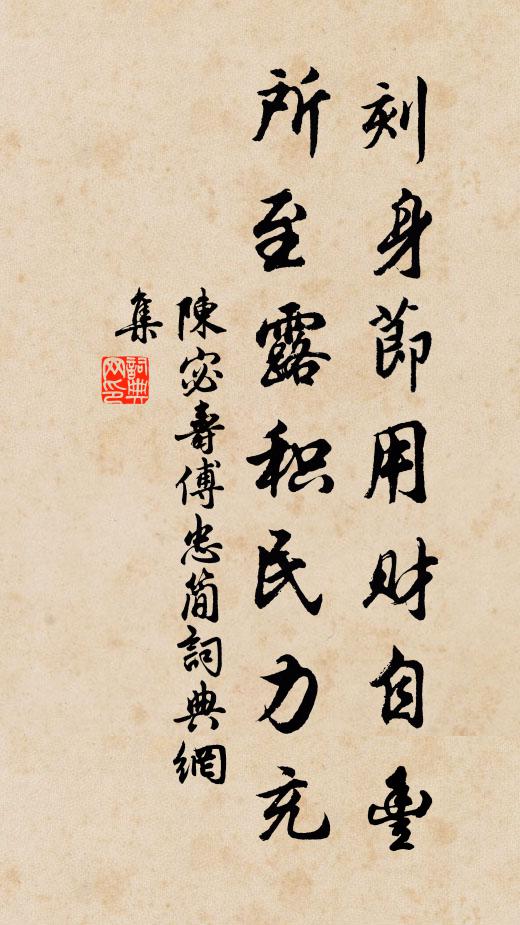 刻身節用财自豊
所至露积民力充
陳宓壽傅忠簡詞典網
集
詞典
网印